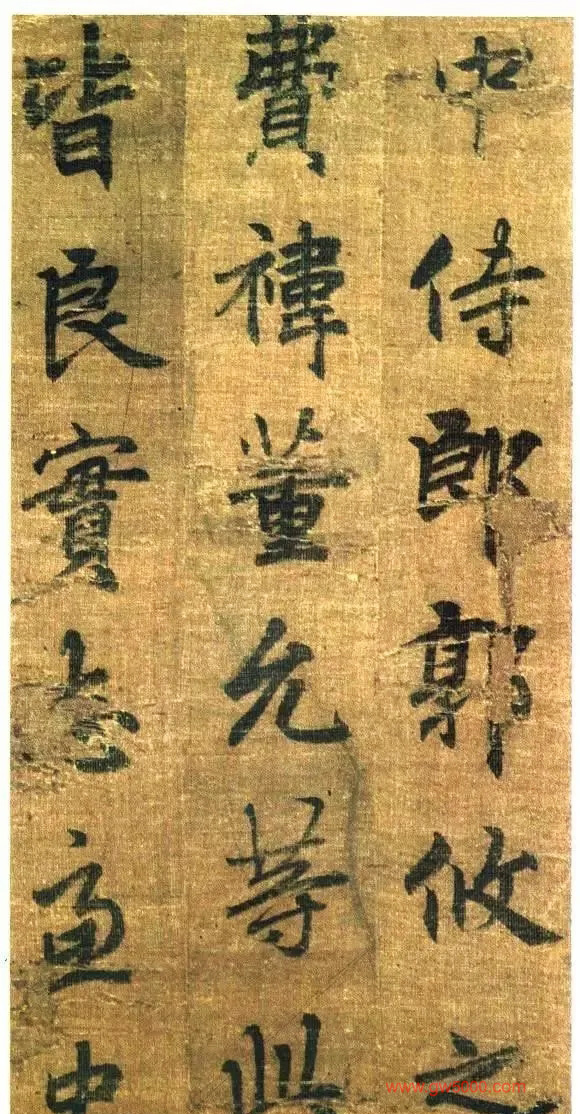 中侍郎郭攸之
費禕董允等此
皆良實志慮忠